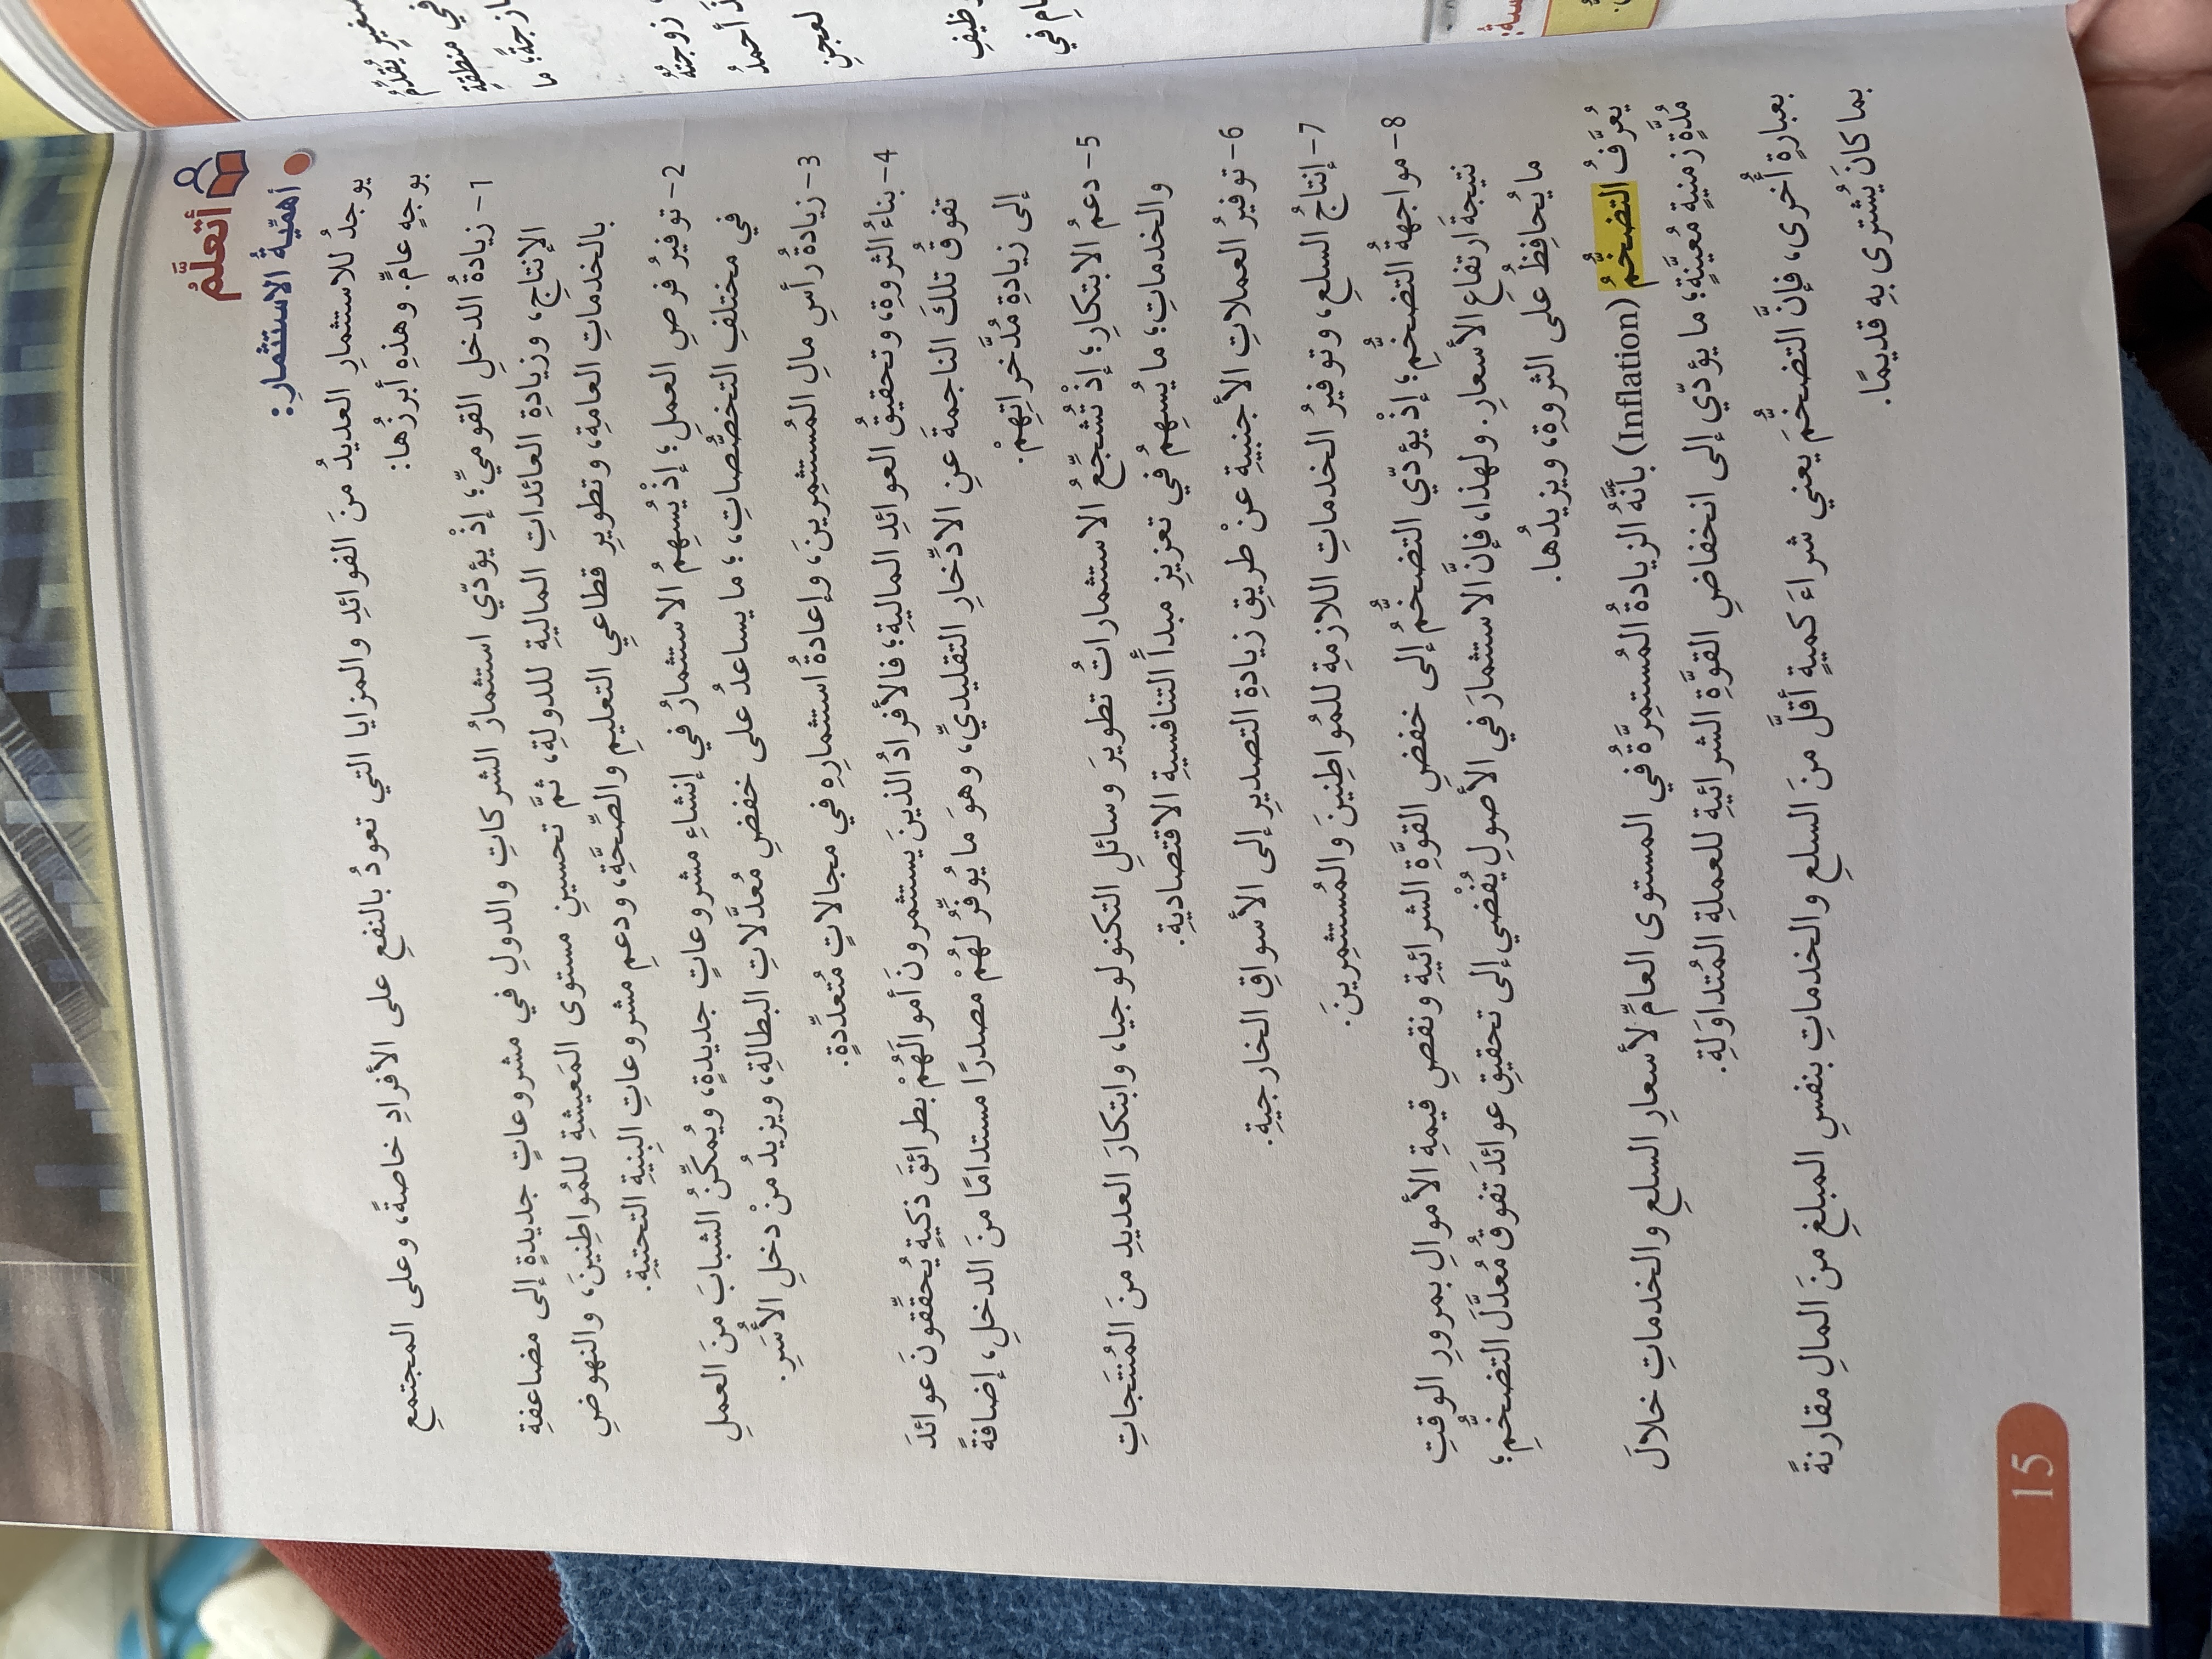 أتعلَّمُ
أهمِّيةُ الاستثمارِ:
يوجدُ للاستثمارِ العديدُ منَ الفوائدِ والمزايا التي تعودُ بالنفعِ على الأفرادِ خاصةً، وعلى المجتمعِ
بوجهٍ عامٍّ. وهذهِ أبرزُها:
1- زيادةُ الدخلِ القوميِّ؛ إذْ يؤدّي استثمارُ الشركاتِ والدولِ في مشروعاتٍ جديدةٍ إلى مضاعفةِ
الإنتاجِ، وزيادةِ العائداتِ الماليةِ للدولةِ، ثمَّ تحسينِ مستوى المَعيشةِ للمُواطِنينَ، والنهوضِ
بالخدماتِ العامةِ، وتطويرِ قطاعيِ التعليمِ والصِّحَّةِ، ودعمِ مشروعاتِ البِنيةِ التحتيةِ.
2- توفيرُ فرصِ العملِ؛ إذْ يُسهِمُ الاستثمارُ في إنشاءِ مشروعاتٍ جديدةٍ، ويُمكِّنُ الشبابَ منَ العملِ
في مختلفِ التخصُّصاتِ،؛ ما يساعدُ على خفضِ مُعدَّلاتِ البطالةِ، ويزيدُ منْ دخلِ الأُسَرِ.
3- زيادةُ رأسِ مالِ المُستثمِرينَ، وإعادةُ استثمارِه في مجالاتٍ مُتعدِّدةٍ.
4- بناءُ الثروةِ، وتحقيقُ العوائدِ الماليةِ؛ فالأفرادُ الذينَ يستثمرونَ أموالَهُمْ بطرائقَ ذكيةٍ يُحقِّقونَ عوائدَ
تفوقُ تلكَ الناجمةَ عنِ الادِّخارِ التقليديِّ، وهوَ ما يُوفِّرُ لهُمْ مصدرًا مستدامًا منَ الدخلِ، إضافةً
إلى زيادةِ مُدَّخراتِهِمْ.
5- دعمُ الابتكارِ؛ إذْ تُشجِّعُ الاستثماراتُ تطويرَ وسائلِ التكنولوجيا، وابتكارَ العديدِ منَ المُنتَجاتِ
والخدماتِ؛ ما يُسهِمُ في تعزيزِ مبدأ التنافسيةِ الاقتصاديةِ.
6- توفيرُ العملاتِ الأجنبيةِ عنْ طريقِ زيادةِ التصديرِ إلى الأسواقِ الخارجيةِ.
7- إنتاجُ السلعِ، وتوفيرُ الخدماتِ اللازمةِ للمُواطِنينَ والمُستثمِرينَ.
8- مواجهةُ التضخُّمِ؛ إذْ يؤدّي التضخُّمُ إلى خفضِ القوَّةِ الشرائيةِ ونقصِ قيمةِ الأموالِ بمرورِ الوقتِ
نتيجةَ ارتفاعِ الأسعارِ. ولهذا، فإنَّ الاستثمارَ في الأصولِ يُفْضي إلى تحقيقِ عوائدَ تفوقُ مُعدَّلَ التضخُّمِ؛
ما يُحافِظُ على الثروةِ، ويزيدُها.
يُعرَّفُ التضخُّمُ (Inflation) بأنَّهُ الزيادةُ المُستمِرَّةُ في المستوى العامِّ لأسعارِ السلعِ والخدماتِ خلالَ
مُدَّةٍ زمنيةٍ مُعيَّنةٍ؛ ما يؤدّي إلى انخفاضِ القوَّةِ الشرائيةِ للعملةِ المُتداوَلةِ.
بعبارةٍ أُخرى، فإنَّ التضخُّمَ يعني شراءَ كميةٍ أقلَّ منَ السلعِ والخدماتِ بنفسِ المبلغِ منَ المالِ مقارنةً
بما كانَ يُشترى بهِ قديمًا.
15